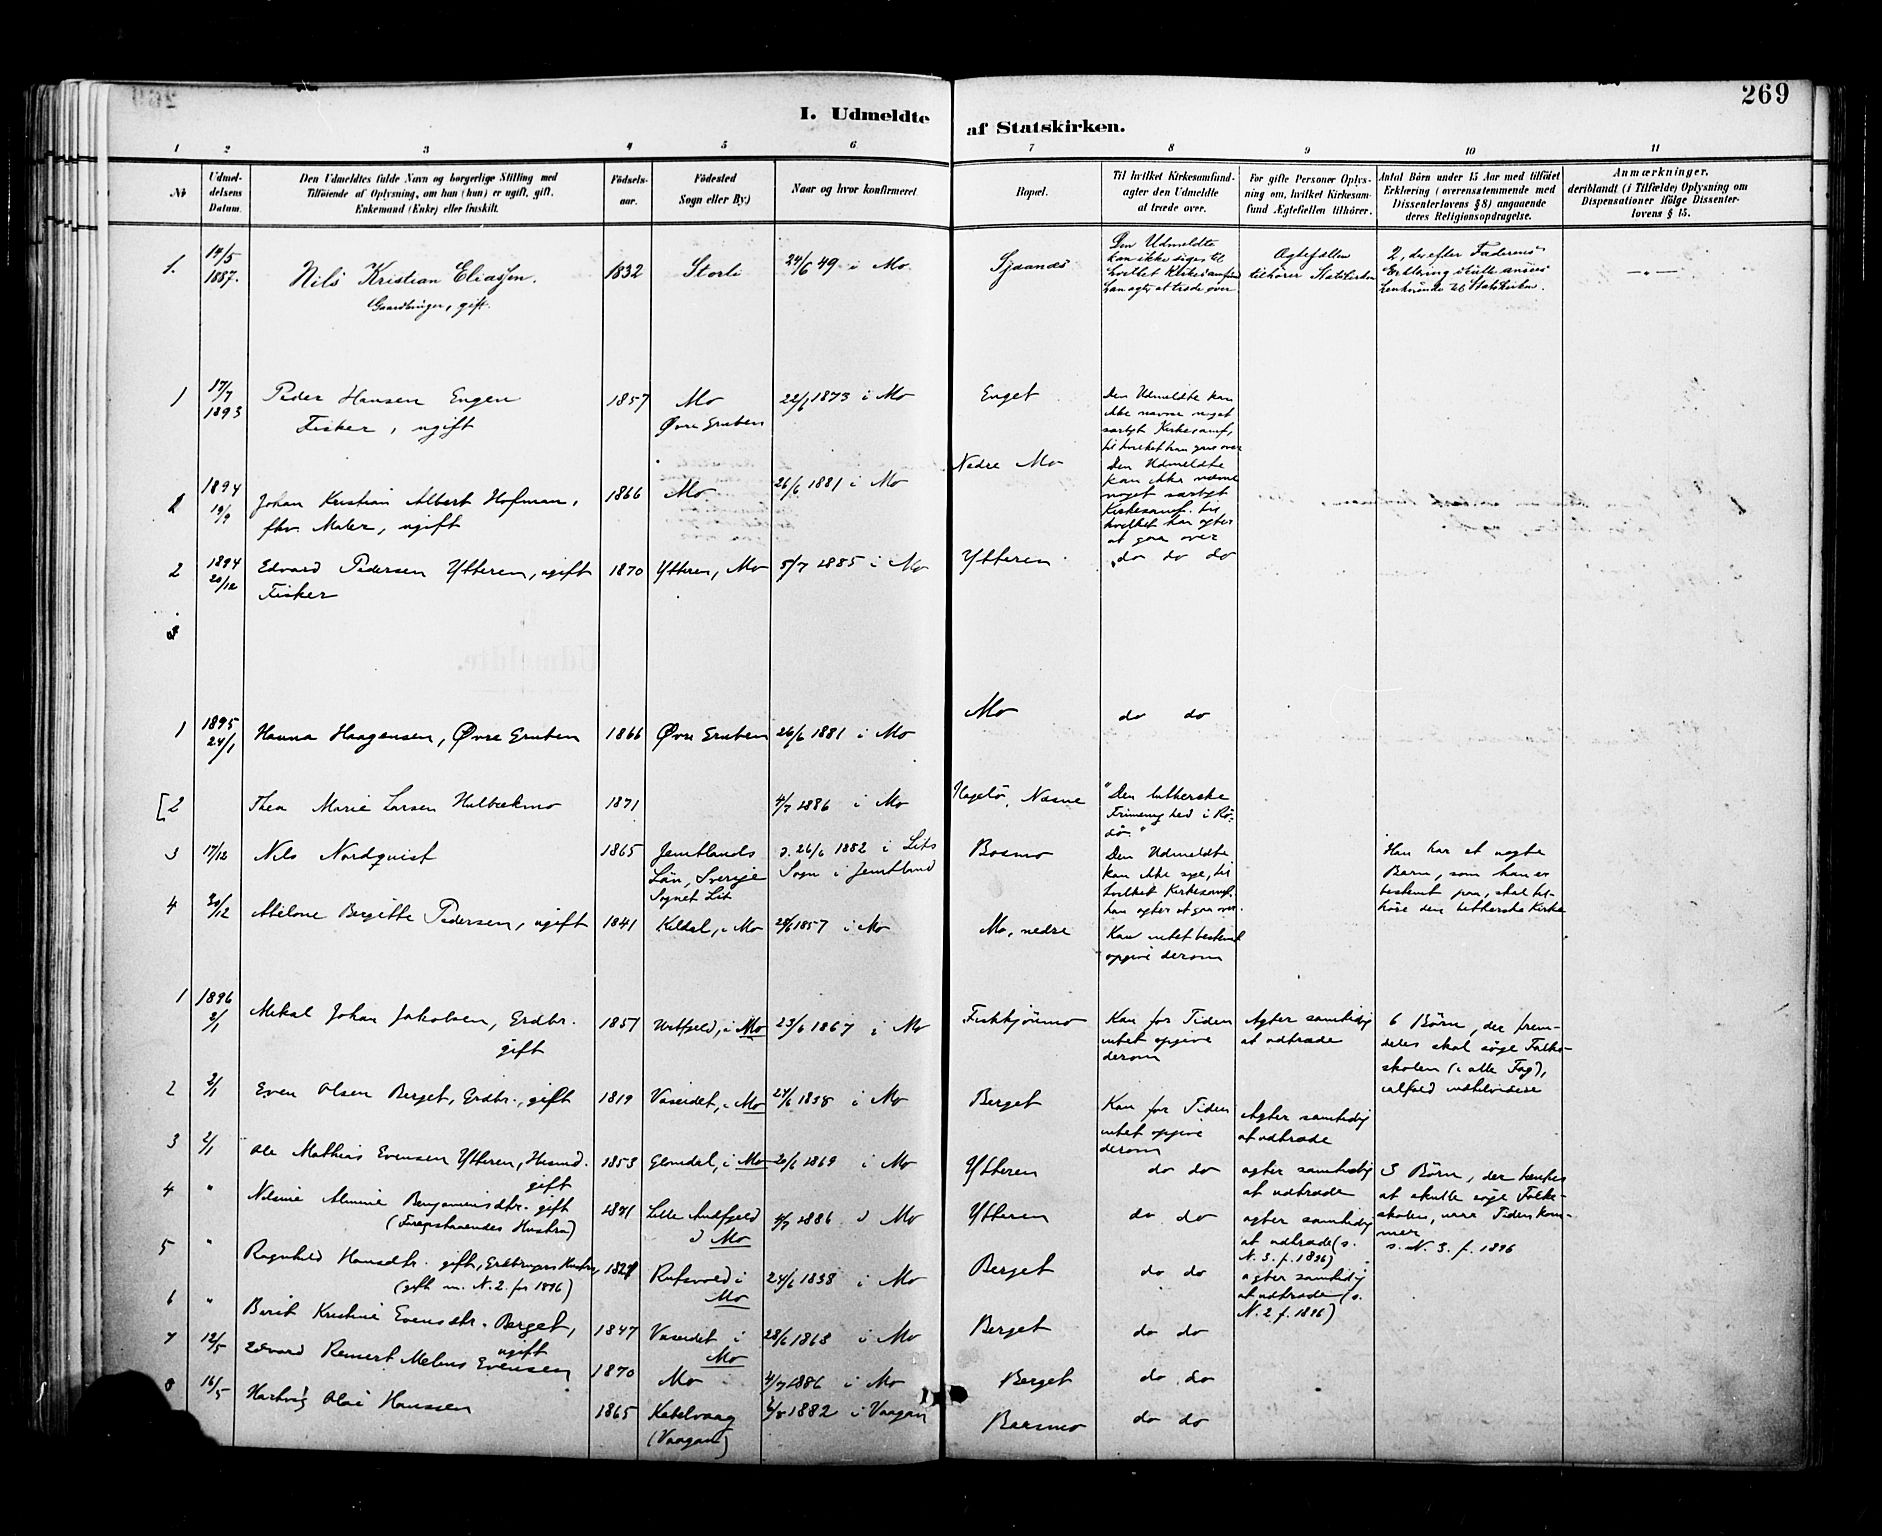 269
I. Udmeldte af Statskirken.
1 2 3 4 5 6 7 8 9 10 11
No
Udmel-
delsens
Datum.
Den Udmeldtes fulde Navn og borgerlige Stilling med
Tilföiende af Oplysning, om han (hun) er ugift, gift,
Enkemand (Enke) eller fraskilt.
Födsels-
aar.
Födested
Sogn eller By.)
Naar og hvor konfirmeret
Bopæl.
Til hvilket Kirkesamfund-
agter den Udmeldte
at træde over.
For gifte Personer Oplys-
ning om, hvilket Kirkesam-
fund Ægtefællen tilhörer.
Antal Börn under 15 Aar med tilföiet
Erklæring (overensstemmende med
Dissenterlovens § 8) angaaende
deres Religionsopdragelse.
Anmærkninger,
deriblandt (i Tilfælde) Oplysning om
Dispensationer ifölge Dissenter-
lovens § 15.
1. 14/5 1887. Nils Kristian Eliassen. 1832 Storli 24/6 49 i Mo
Gaardbruger, gift.
Sjaanes
Den Udmeldte
kan ikke siges til
hvilket Kirkesamfund
han agter at træde over
Ægtefællen
tilhører Statskirken
2, der efter Faderens
Erklæring skulle ansees
henhørende til Statskirken.
— " —
1 17/7 1893 Peder Hansen Engen 1857 Mo 22/6 1873 i Mo Enget
Fisker, ugift Øvre Gruben
Den Udmeldte kan
ikke nævne noget
særligt Kirkesamf.
til hvilket han gaar over
1 1894 19/9 Johan Kristian Albert Hofman, 1866 Mo 26/6 1881 i Mo Nedre Mo
fhv. Maler, ugift
Den Udmeldte
kan ikke nævne
noget særligt
Kirkesamf. til
hvilket han agter
at gaa over
2 1894 20/12 Edvard Pedersen Ytteren, ugift 1870 Ytteren, Mo 5/7 1885 i Mo Ytteren do do do
Fisker
3
1 1895 24/1 Hanna Haagensen, Øvre Gruben 1866 Øvre Gruben 26/6 1881 i Mo Mo do do
[2 Thea Marie Larsen Halbækmo 1871 4/7 1886 i Mo Nesne
"Den lutherske
Frimenighed i Rö-
dö."
3 17/12 Nils Nordquist 1865 Jemtlands 26/6 1882 i Lits Bosmo
Län, Sverige Sogn i Jemtland
Sognet Lit
Den Udmeldte
kan ikke sige, til
hvilket Kirkesamf.
han agter at gaa over.
Han har et uægte
Barn, som han er
bestemt paa, skal til-
höre den lutherske Kirke
4 30/12 Bergitte Pedersen, ugift 1841 Kildal, i Mo 28/6 1857 i Mo Mo, nedre
Kan intet bestemt
opgive derom
1 1896 2/1 Mikal Johan Jakobsen, Grdbr. 1851 i Mo 23/6 1867 i Mo
gift
Kan for Tiden
intet opgive
derom
Agter samtidig
at udtræde
6 Börn, der frem-
deles skal söge Folke-
skolen (i alle Fag),
2 2/1 Even Olsen Berget, Grdbr., gift 1819 Vaseidet, i Mo 24/6 1838 i Mo Berget
Kan for Tiden
intet opgive
derom
Agter samtidig
at udtræde
3 2/1 Ole Mathias Evensen Ytteren, Husmd. 1853 Glomdal, i Mo 20/6 1869 i Mo Ytteren do do
gift
agter samtidig
at udtræde
3 Börn, der tænkes
at skulle söge Folke-
skolen, naar Tiden kom-
mer
4 " Benjaminsdtr. gift 1871 Lille i Mo 4/7 1886 i Mo Ytteren do do
(Foregstaaendes Hustru)
agter samtidig
at udtræde (s.
N. 3. f. 1896)
s. N. 3. f. 1896
5 " Ragnhild Hansdtr. gift, Grdbrugers Hustru, Rufsvold i Mo 24/6 1838 i Mo Berget do do
(gift m. N. 2. for 1896)
agter samtidig
at udtræde (s.
N. 2 f. 1896)
6 " Berit Kristine Evensdtr. Berget, 1847 Vaseidet i Mo 28/6 1863 i Mo Berget do do
ugift
7 12/5 Edvard Remert Evensen 1870 Mo 4/7 1886 i Mo Berget do do
8 16/5 Hartvig Olai Hanssen 1865 Kabelvaag 1882 i Vaagan Bosmo do do
(Vaagan)